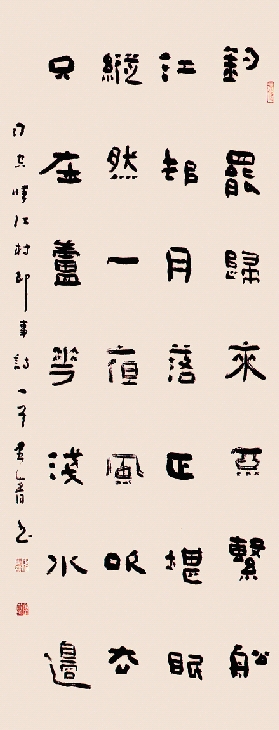 釣罷歸來繫船
江邨月落正堪眠
縱然一夜風吹去
只在蘆花淺水邊
司空曙江村即事詩一首